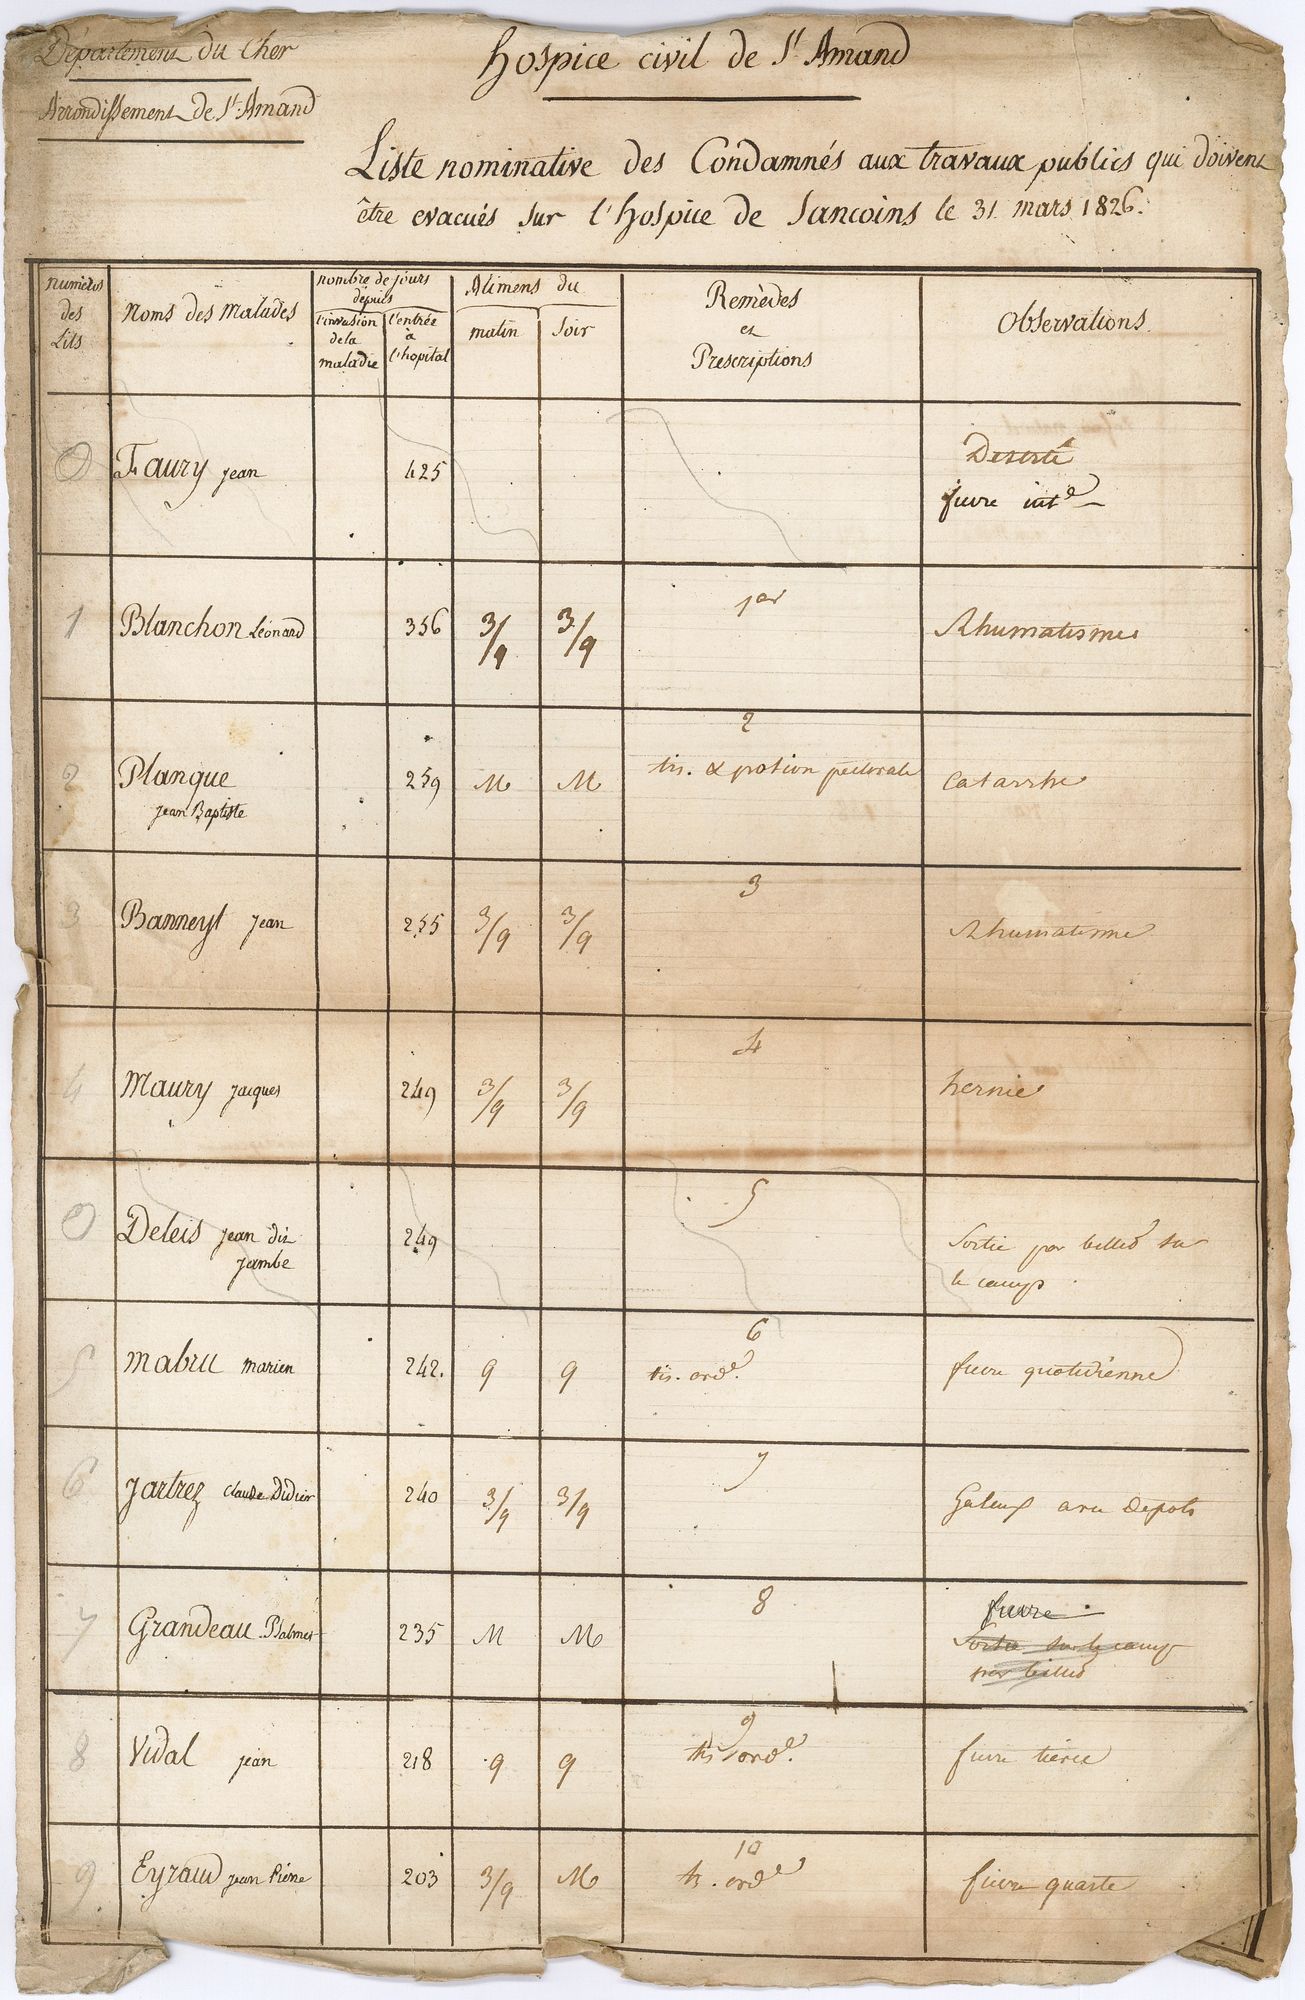 Département du Cher
Arrondissement de St. Amand
Hospice civil de St Amand
Liste nominative des Condamnés aux travaux publics qui doivent
être evacués sur l'hospice de Sancoins le 31. mars 1826.
numéros des Lits
Noms des Malades
nombre de jours depuis
l'invasion de la maladie
l'entrée à l'hopital
Alimens du
matin
soir
Remèdes et Prescriptions
Observations
0 Faury jean 425 Deserté
fievre intte
1 Blanchon Léonard 356 3/9 3/9 1er Rhumatisme
2 Planque 259 M M 2 tis. & potion pectorale catarrhe
jean Baptiste
3 Banneyt jean 255 3/9 3/9 3 Rhumatisme
4 Maury jacques 249 3/9 3/9 4 hernie
0 Deleis jean dit 249 5 Sortie par billet sur
jambe le camp
5 mabru marien 242. 9 9 6 tis. orde. fievre quotidienne
6 Jartrez Claude Didier 240 3/9 3/9 7 Galeux avec depots
7 Grandeau 235 M M 8 fievre
Sortie sur le camp
par billet
8 Vidal jean 218 9 9 9 tis orde. fievre tierce
9 Eyraud jean Piérre 203 3/9 M 10 tis. orde fievre quarte